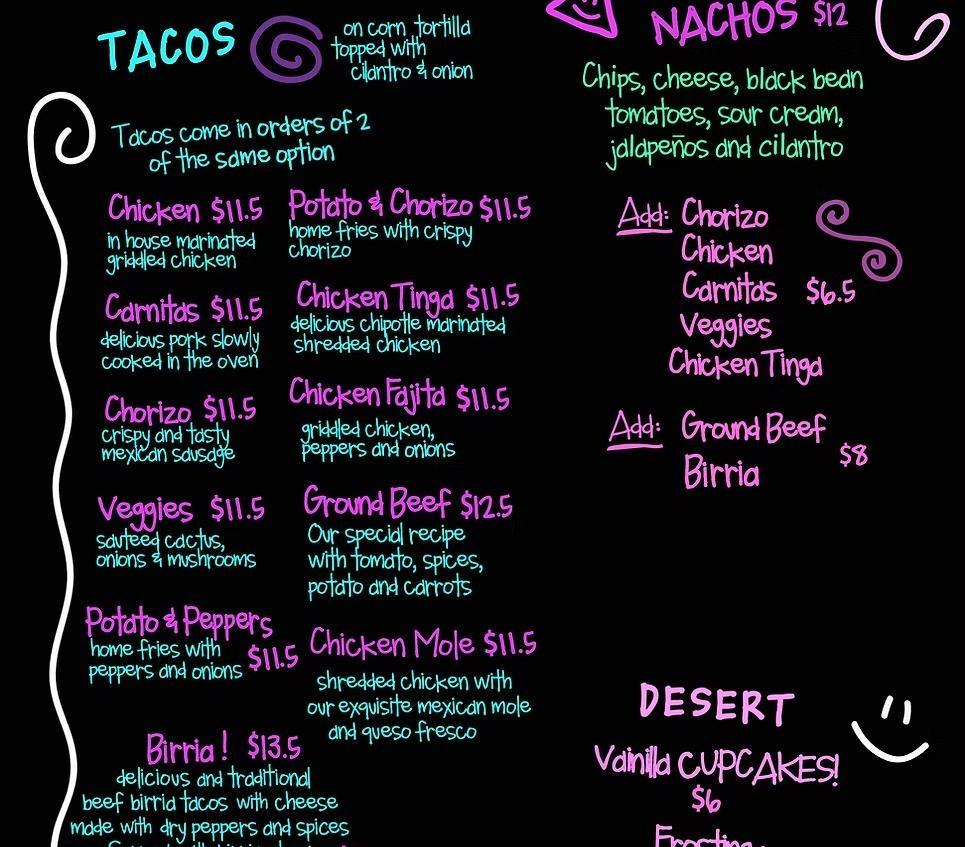 TACOS
on corn tortilla
topped with
cilantro & onion
Tacos come in orders of 2
of the same option
Chicken $11.5
in house marinated
griddled chicken
Carnitas $11.5
delicious pork slowly
cooked in the oven
Chorizo $11.5
crispy and tasty
mexican sausage
Veggies $11.5
sauteed cactus,
onions & mushrooms
Potato & Peppers
home fries with
peppers and onions $11.5
Birria! $13.5
delicious and traditional
beef birria tacos with cheese
made with dry peppers and spices
Potato & Chorizo $11.5
home fries with crispy
chorizo
Chicken Tinga $11.5
delicious chipotle marinated
shredded chicken
Chicken Fajita $11.5
griddled chicken,
peppers and onions
Ground Beef $12.5
Our special recipe
with tomato, spices,
potato and carrots
Chicken Mole $11.5
shredded chicken with
our exquisite mexican mole
and queso fresco
NACHOS $12
Chips, cheese, black bean
tomatoes, sour cream,
jalapeños and cilantro
Add: Chorizo
Chicken
Carnitas $6.5
Veggies
Chicken Tinga
Add: Ground Beef
$8
Birria
DESERT
Vainilla CUPCAKES!
$6
Frosting